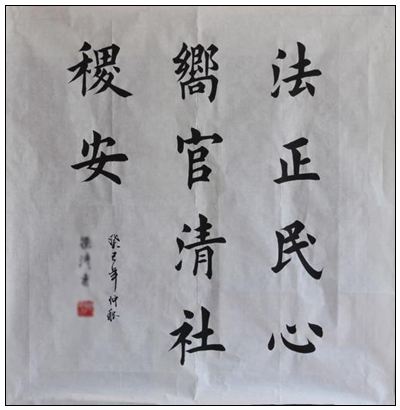 法正民心
嚮官清社
稷安
癸巳年仲秋